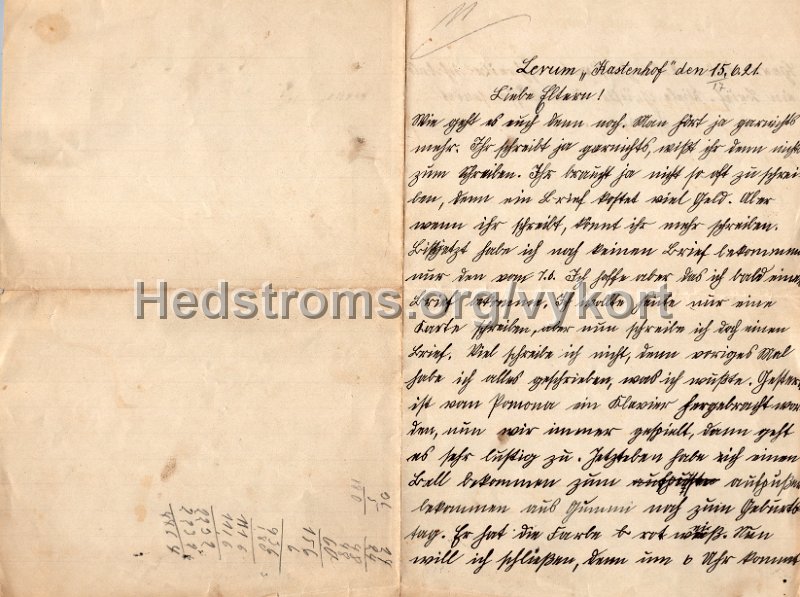 Lerum „Kastenhof" den 15.6.21.
17
Liebe Eltern!
Wie geht es euch denn noch. Man hört ja garnichts
mehr. Ihr schreibt ja garnichts, wißt ihr denn nichts
zum schreiben. Ihr braucht ja nicht so oft zu schrei-
ben, denn ein Brief kostet viel Geld. Aber
wenn ihr schreibt, könnt ihr mehr schreiben.
Bisjetzt habe ich noch keinen Brief bekommen
nur den vom 7.6. Ich hoffe aber das ich bald einen
Brief bekomme. Ich wollte heute nur eine
Karte schreiben, aber nun schreibe ich doch einen
Brief. Viel schreibe ich nicht, denn voriges Mal
habe ich alles geschrieben, was ich wußte. Gestern
ist vom Pomona ein Klavier hergebracht wor
den, nun wir immer gespielt, dann geht
es sehr lustig zu. Jetzteben habe ich einen
Ball bekommen zum
bekommen aus Gummi noch zum Geburts
tag. Er hat die Farbe b rot weiß. Nun
will ich schließen, denn um 6 Uhr kommt
Hedstroms.org/vykort